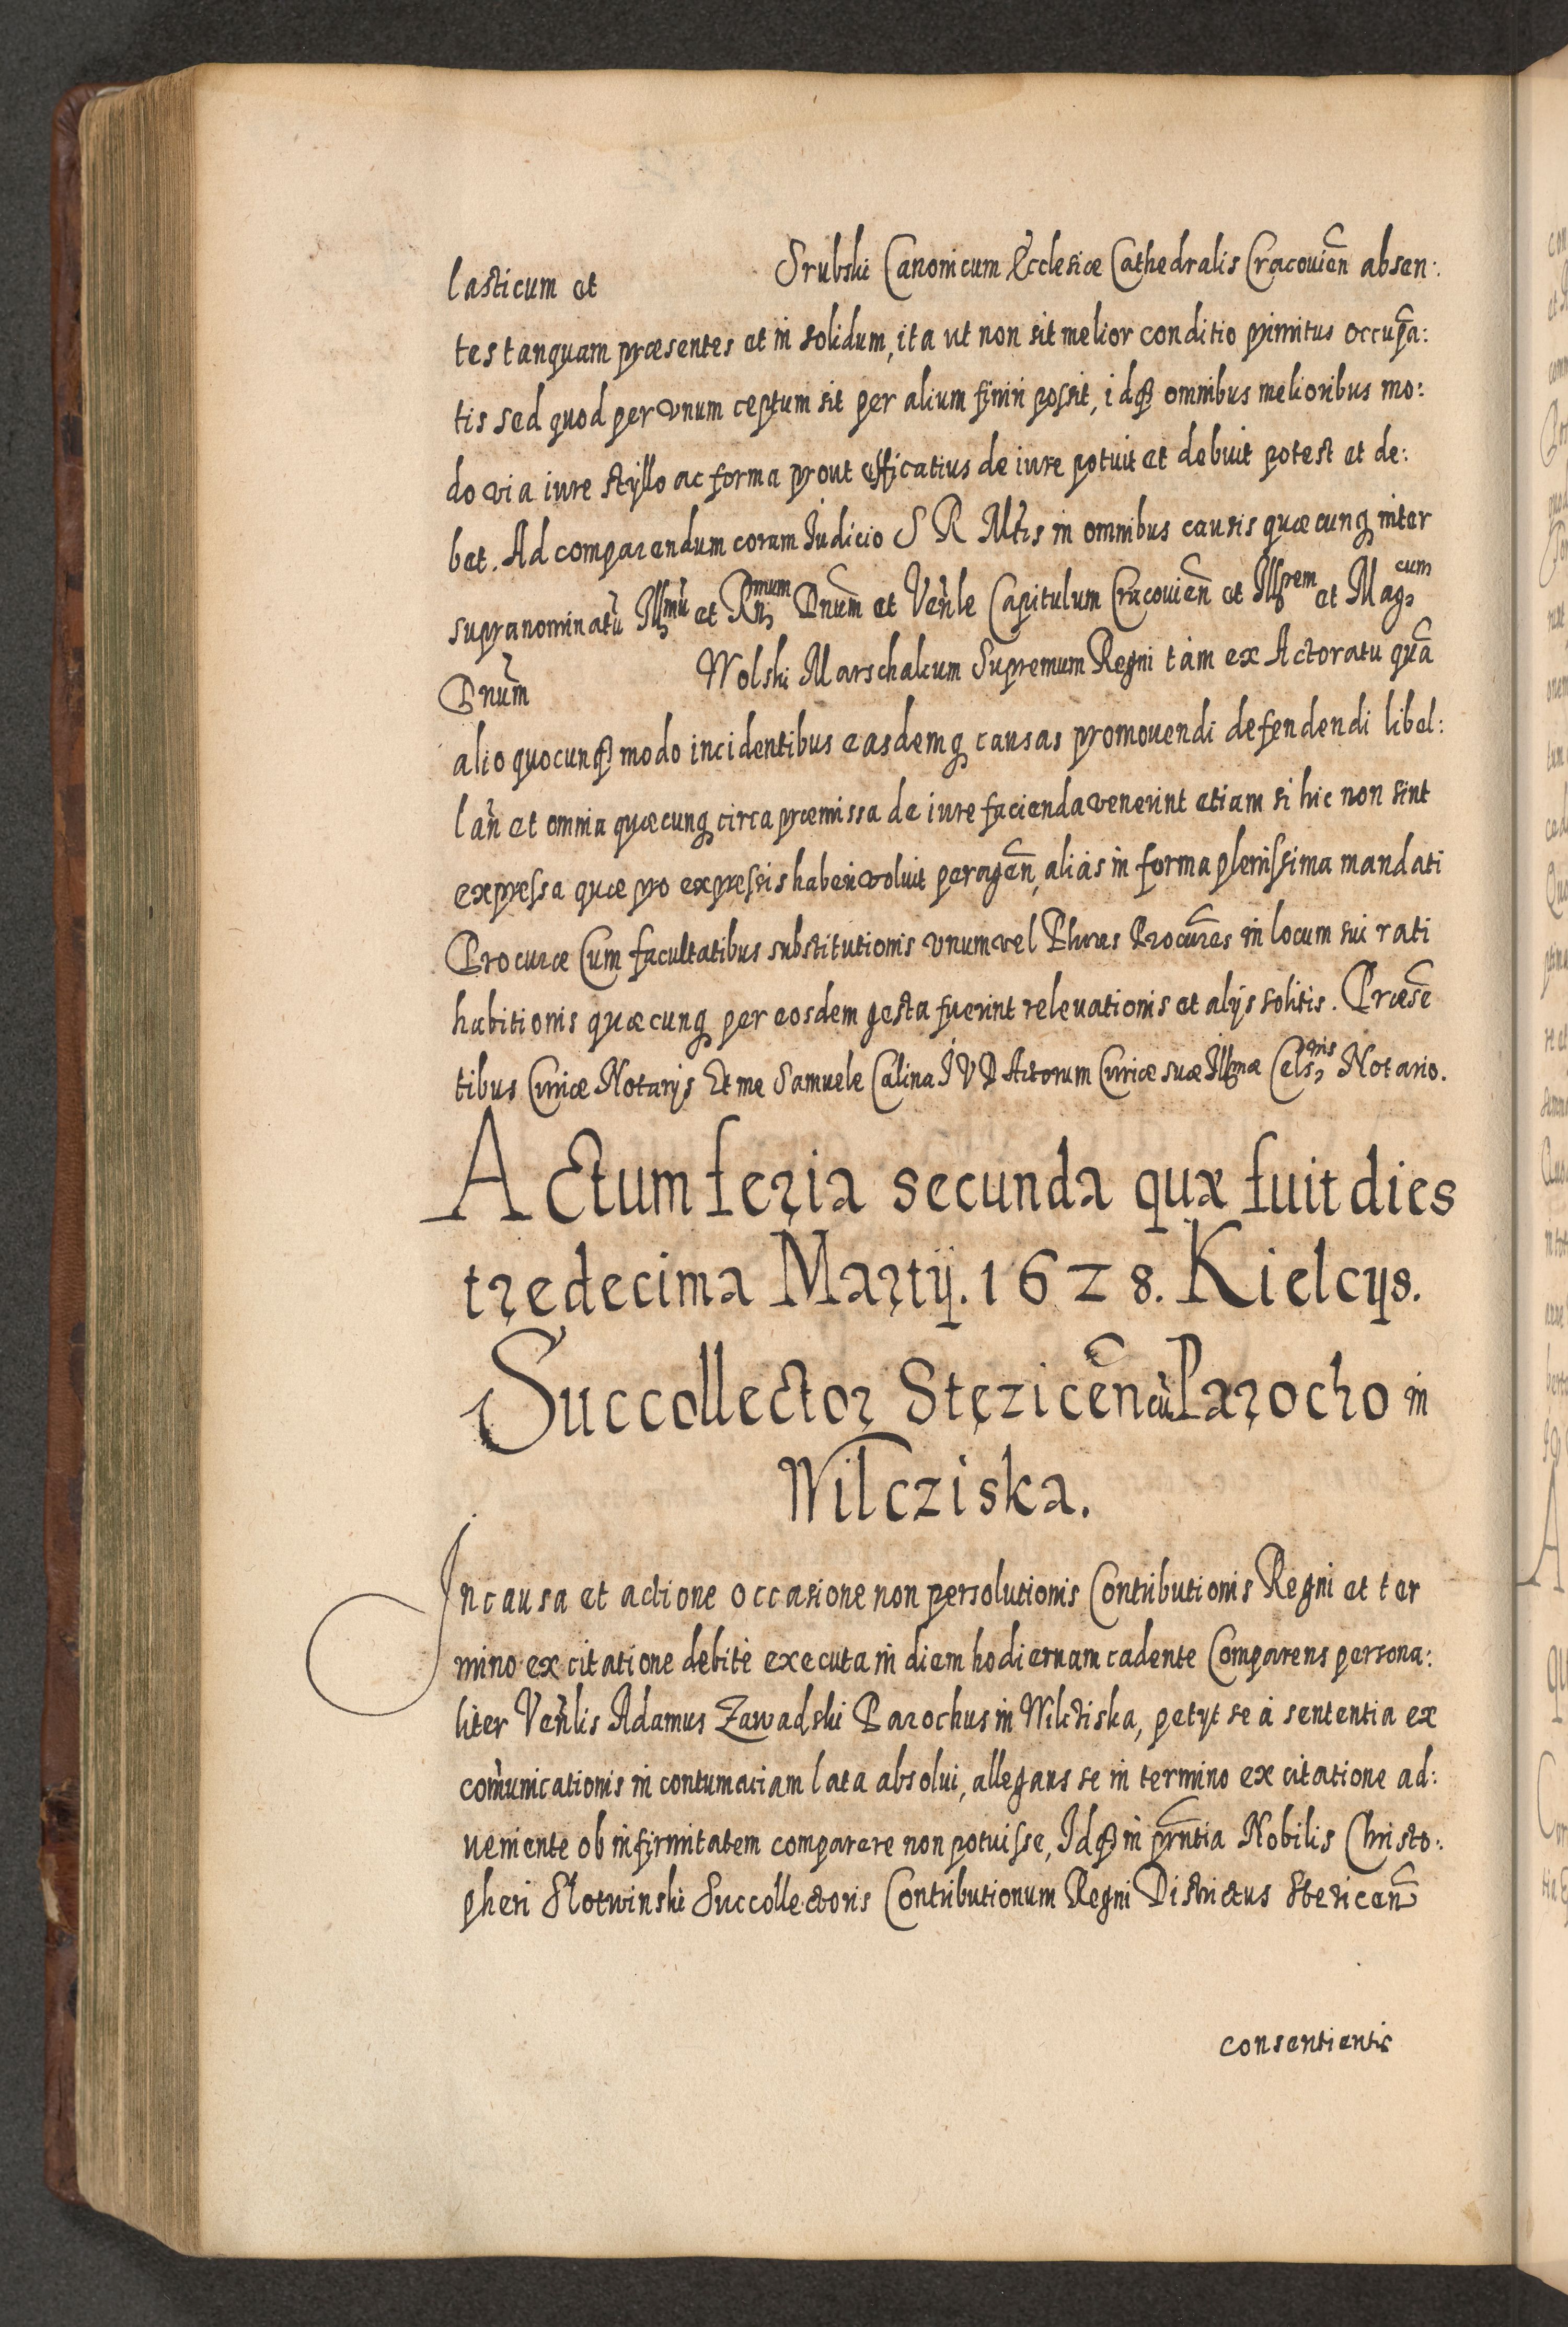 lasticum et Srubski Canonicum Ecclesiæ Cathedralis Cracouien̄ absen:
tes tanquam præsentes et in solidum, ita ut non sit melior conditio primitus occupa:
tis sed quod per vnum ceptum sit per alium finiri possit, idq̃ omnibus melioribus mo:
do via iure styllo ac forma prout efficatius de iure potuit et debuit potest et de:
bet. Ad comparendum coram Iudicio S R Mtis in omnibus causis quæcunq̃ inter
supranominatū Illmū et Rñmum Dnūm et Veñle Capitulum Cracouien̄ et Illprem et Mag:cum
Dnūm Wolski Marschalcum Supremum Regni tàm ex Actoratu quā
alio quocunq̃ modo incidentibus easdemq̃ causas promouendi defendendi libel:
lan̄ et omnia quæcunq̃ circa præmissa de iure facienda venerint etiam si hic non sint
expressa quæ pro expressis haberi voluit peragen̄, aliàs in forma plenissima mandati
Procuræ Cum facultatibus substitutionis vnum vel Plures Procur̄es in locum sui rati
habitionis quæcunq̃ per eosdem gesta fuerint releuationis et alijs solitis. Præsē
tibus Curiæ Notarijs Et me Samuele Calina I V D Actorum Curiæ suæ Illmæ Cels:nis Notario.
Actum feria secunda quæ fuit dies
tredecima Martij. 1628. Kielcijs.
Succollector Stęzicen̄ cū Parocho in
Wilcziska.
In causa et actione occasione non persolutionis Contributionis Regni et ter
mino ex citatione debitè executa in diem hodiernam cadente Comparens persona:
liter Veñlis Adamus Zawadski Parochus in Wilcziska, petyt se à sententia ex
com̄unicationis in contumaciam lata absolui, allegans se in termino ex citatione ad:
ueniente ob infirmitatem comparere non potuisse, Idq̃ in prñtia Nobilis Christo:
pheri Slotwinski Succollectoris Contributionum Regni Districtus Stezicen̄
consentientis